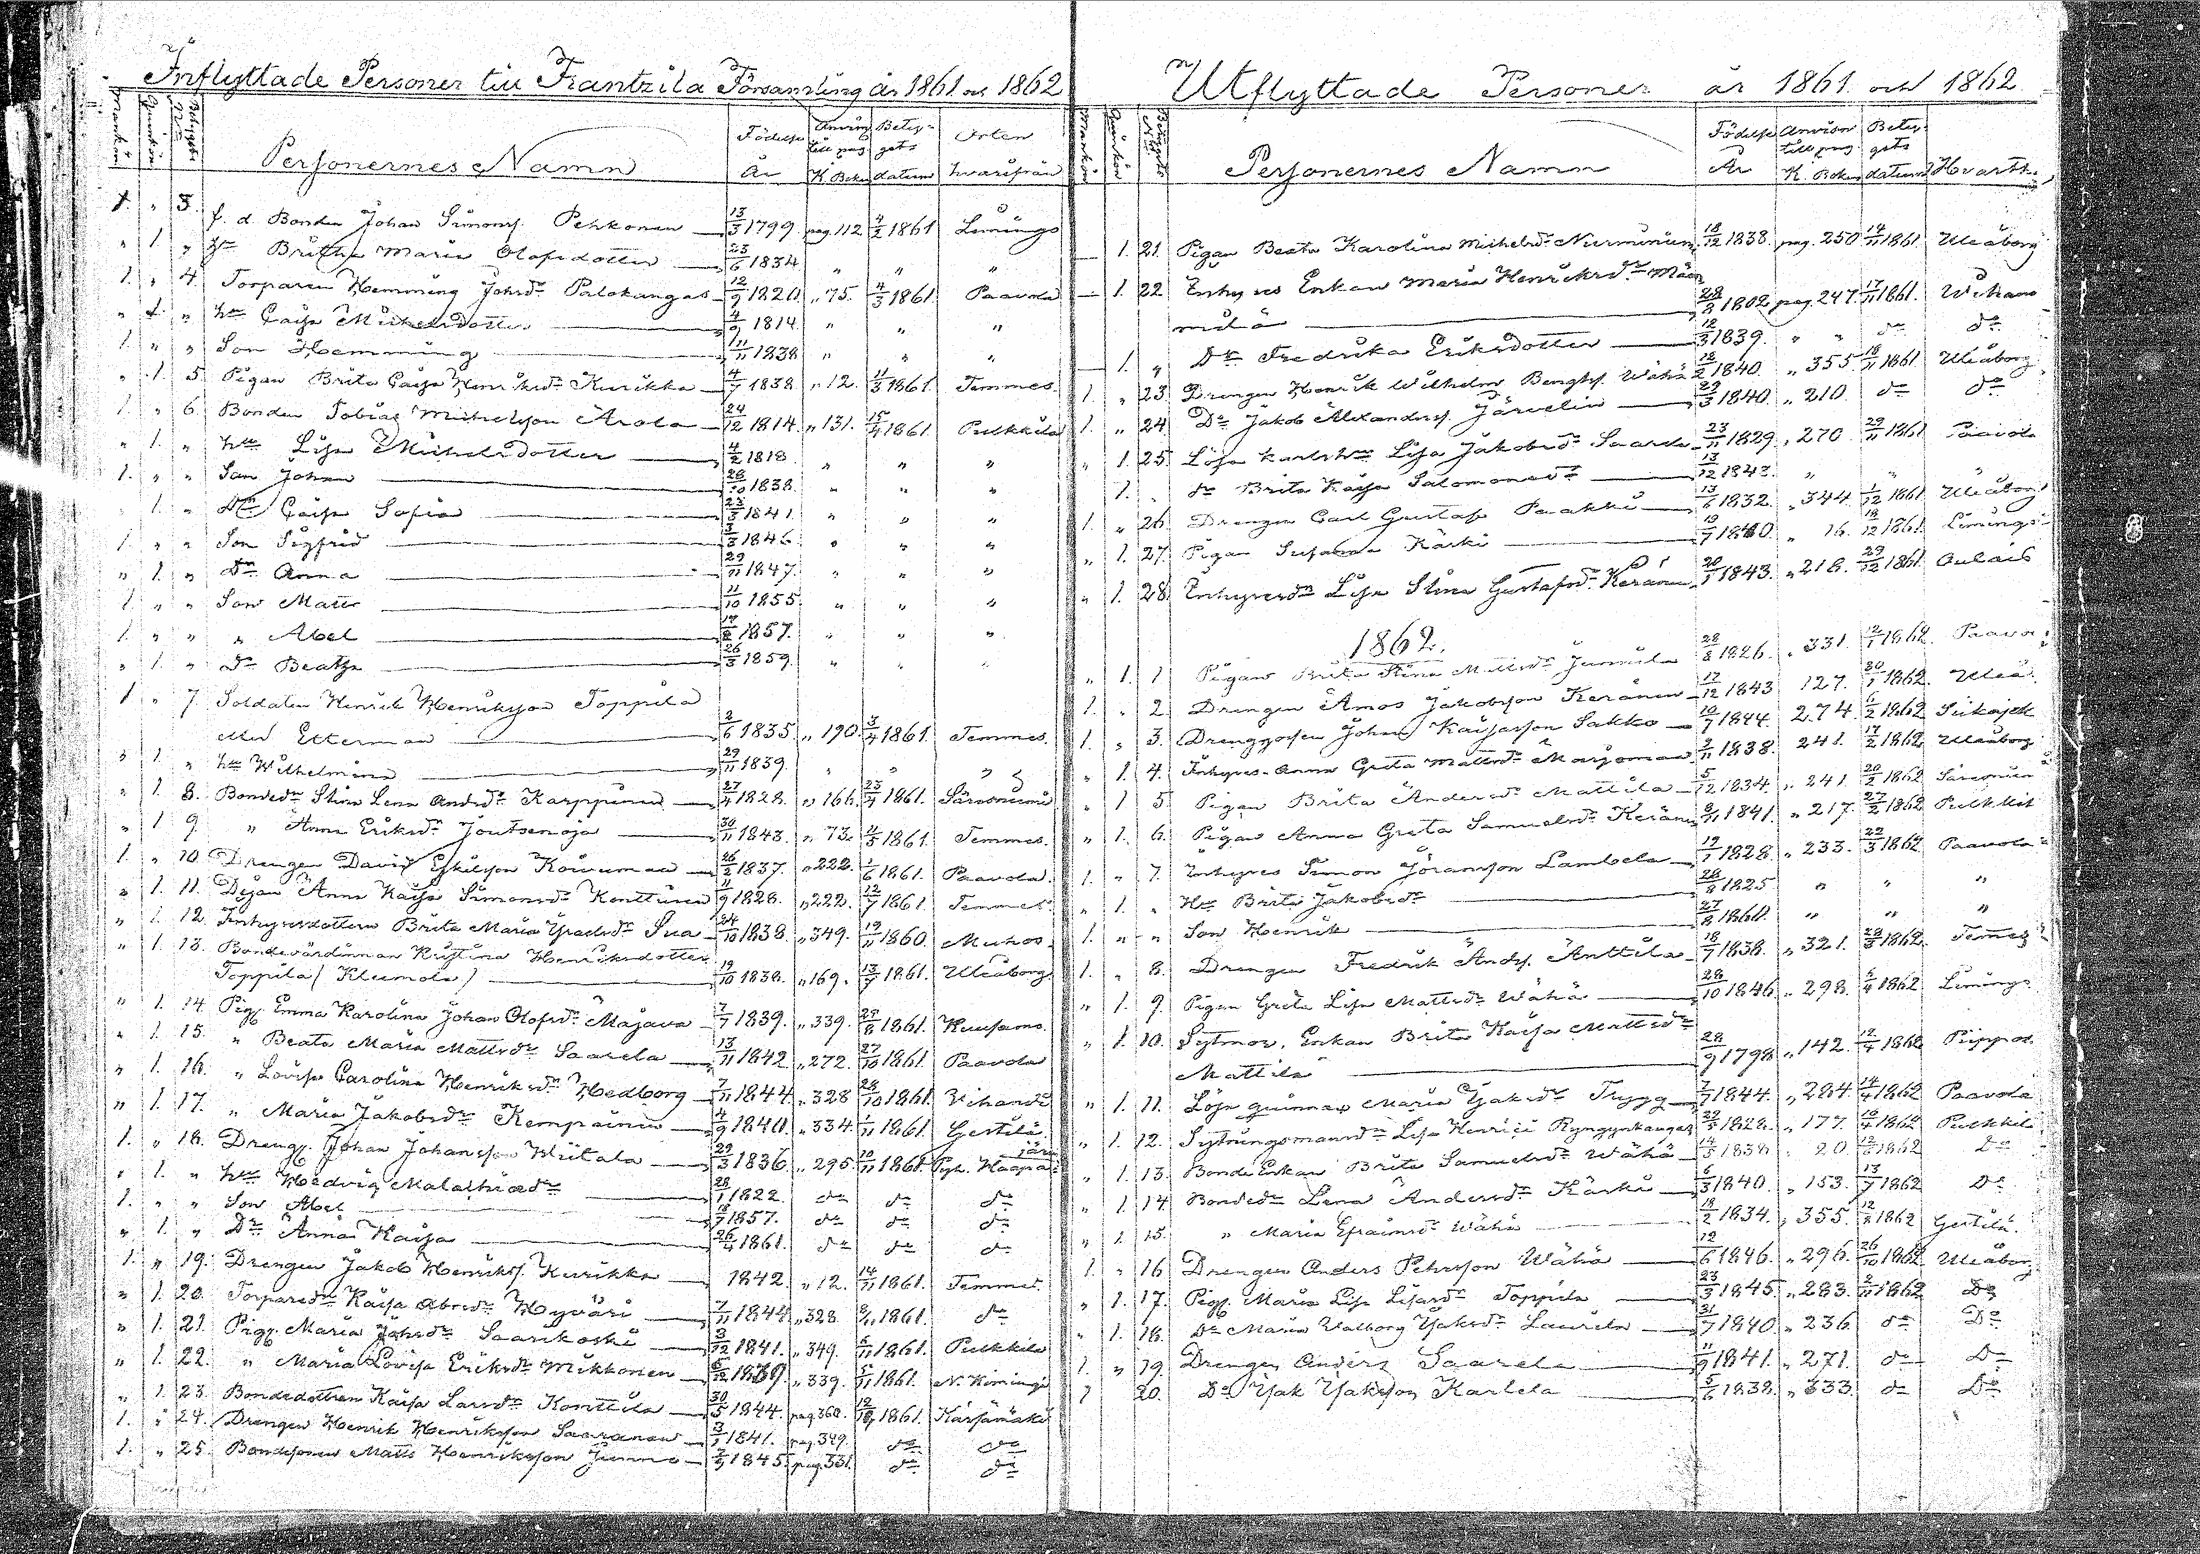 Inflyttade Personer till Frantzila Församling år 1861 och 1862
Mankön Qvinkön Betygets No Personernes Namn Födelse År Anvisn till pag K. Boken Betygets datum Orten hvarifrån
1. " 3. f. d. Bonden Johan Simonss. Pehkonen 13/3 1799. pag. 112 4/2 1861 Limingo
" 1. " Hu Britha Maria Olofsdotter 23/6 1834 " " "
1. " 4. Torparen Hemming Johsdr Palokangas 12/9 1820. " 75. 4/3 1861 Paavola
" 1. " hu Caisa Michelsdotter 4/9 1814. " " "
1. " " Son Hemming 11/11 1838 " " "
" 1. 5. Pigan Brita Caisa Henriksdr Kurikka 4/7 1838. " 12. 11/3 1861 Temmes.
1. " 6. Bonden Tobias Michelsson Arola 24/12 1814. " 131. 15/4 1861. Pulkkila
" 1. " hu Lisa Michelsdotter 4/2 1818. " " "
1. " " Son Johan 26/10 1838. " " "
" 1. " Dr Caisa Sofia 23/3 1841. " " "
1. " " Son Sigfrid 3/3 1846 " " "
" 1. " Dr Anna 29/11 1847. " " "
1. " " Son Matts 11/10 1855. " " "
1. " " " Abel 1857. " " "
" 1. " Dr Beata 26/3 1859. " " "
1. " 7. Soldaten Henrik Henriksson Toppila
eller Etterman 2/6 1835. " 190. 3/4 1861. Temmes.
" 1. " hu Wilhelmina 29/11 1839. " " "
" 1. 8. Bondedr Stina Lena Andrsdr Karppinen 27/4 1828. " 166. 23/4 1861. Säresniemi
" 1. 9. " Anna Eriksdr Joutsenoja 30/11 1843. " 73. 4/5 1861. Temmes.
1. " 10. Drengen David Eskilsson Koivumaa 26/2 1837. " 222. 1/6 1861. Paavola.
" 1. 11. Dejan Anna Kaisa Simonsdr Kenttinen 11/9 1828. " 222. 12/7 1861. Temmes.
" 1. 12. Inhysesdottern Brita Maria Grelsdr Sua 24/10 1838. " 349. 19/11 1860. Muhos.
" 1. 13. Bondevärdinnan Kristina Henriksdotter
Toppila (Klemola) 19/10 1838. " 169. 13/7 1861. Uleåborg
" 1. 14. Pig. Emma Karolina Johan Olofsdr Majava 7/7 1839. " 339. 29/8 1861. Kuusamo.
" 1. 15. " Beata Maria Mattsdr Saarela 13/11 1842. " 272. 27/10 1861. Paavola
" 1. 16. " Lovisa Carolina Henriksdr Hedborg 7/11 1844. " 328 28/10 1861. Vihandi
" 1. 17. " Maria Jakobsdr Kempainen 4/9 1840. " 334. 5/11 1861. Gestilä.
1. " 18. Drengen Johan Johansson Wiitala 29/3 1836. " 295. 10/11 1861. Pyh. Haapajärv
" 1. " hu Hedvig Malachiædr 28/1 1822. do do do
1. " " Son Abel 18/7 1857. do do do
" 1. " Dr Anna Kaisa 26/4 1861. do do do
1. " 19. Drengen Jakob Henrikss. Kurikka 1842. " 12. 14/11 1861. Temmes.
" 1. 20. Torparedr Kaisa Abrsdr Hyväri 7/11 1844. " 328. 8/11 1861. do
" 1. 21. Pig. Maria Johsdr Saarikoski 3/12 1841. " 349. 5/11 1861. Pulkkila
" 1. 22. " Maria Lovisa Eriksdr Mikkonen 6/12 1839. " 339. 5/11 1861. N. Kimingi
" 1. 23. Bondedottren Kaisa Larsdr Konttila 30/5 1844. pag. 360. 1861. Kärsämäki
1. " 24. Drengen Henrik Henriksson Saaranen 3/1 1841. pag. 349. do do
1. " 25. Bondesonen Matts Henriksson Junno 2/9 1845. pag. 331. do do
Utflyttade Personer år 1861. och 1862
Mankön Qvinkön Betygets No Personernes Namn Födelse År Anvisn till pag K. Boken Betygets datum Hvarth.
1. 21. Pigan Beata Karolina Michelsdr Nurminen 18/12 1838. pag. 250 14/11 1861. Uleåborg
1. 22. Inhyses Enkan Maria Henriksdr Mäen
mäkä 28/8 1802 pag. 247. 17/11 1861. Wihand
1. " Dr Fredrika Eriksdotter 12/3 1839. " " do do
1. " 23. Drengen Henrik Wilhelm Bengtss. Wähä 18/2 1840. " 355. 18/11 1861. Uleåborg
1. " 24. Do Jakob Alexanderss. Järvelin 29/3 1840. " 210. do do
" 1. 25. Lösa karls hu Lisa Jakobsdr Saarela 23/11 1829. " 270. 29/11 1861 Paavola
1. " dr Brita Kaisa Salomonsdr 13/12 1843. " " "
1. " 26. Drengen Carl Gustaf Paakki 13/6 1832. " 344. 1/12 1861. Uleåborg
" 1. 27. Pigan Susanna Karki 19/7 1840. " 16. 18/12 1861. Limingo
" 1. 28. Inhysesdr Lisa Stina Gustafsdr Keränen 20/1 1843. " 218. 29/12 1861. Oulais
1862.
" 1. 1. Pigan Brita Stina Mattsdr Junnila 28/8 1826. " 331. 12/1 1862. Paavo
1. " 2. Drengen Amos Jakobsson Keränen 17/12 1843 127. 30/1 1862. Uleå.
1. " 3. Drenggossen Johan Kaisasson Sakko 10/7 1844. 274. 6/2 1862 Siikajok
" 1. 4. Inhyses- Anna Greta Mattsdr Marjomaa 2/11 1838. 241. 17/2 1862. Uleåborg
" 1. 5. Pigan Brita Andersdr Mattila 5/12 1834. " 241. 20/2 1862 Säresnien
" 1. 6. Pigan Anna Greta Samuelsdr Keränen 8/11 1841. " 217. 27/2 1862 Pulkkil
1. " 7. Inhyses Simon Jöransson Lambela 19/1 1828. " 233. 22/3 1862 Paavola
" 1. " Hu Brita Jakobsdr 28/8 1825 " " "
1. " " Son Henrik 27/8 1860. " " "
1. " 8. Drengen Fredrik Anders. Anttila 18/7 1838. " 321. 28/3 1862. Temmes
" 1. 9. Pigan Greta Lisa Mattsdr Wähä 28/10 1846. " 298. 5/4 1862 Limingo
" 1. 10. Sytnings. Enkan Brita Kaisa Mattsdr
Mattila 28/9 1798. " 142. 12/4 1862 Piippol.
" 1. 11. Lösa quinnan Maria Jaksdr Trygg 7/7 1844. " 284. 14/4 1862 Paavola
" 1. 12. Sytningsmansdr Lisa Henrici Ryngynkangas 1828. " 177. 16/4 1862 Pulkkila
" 1. 13. Bonde Enkan Brita Samuelsdr Wähä 14/5 1838 " 20. 1862 Do
" 1. 14. Bondedr Lena Andersdr Kärki 6/3 1840. " 153. 13/7 1862 Do
" 1. 15. " Maria Efraimsdr Wähä 18/2 1834. " 355. 1862 Gestilä.
1. " 16. Drengen Anders Pehrsson Wähä 12/6 1846. " 296. 26/10 1862 Uleåborg
" 1. 17. Pig. Maria Lisa Lisasdr Toppila 23/3 1845. " 283. 2/11 1862. Do
" 1. 18. Do Maria Walborg Jaksdr Laurila 31/7 1840. " 236. do Do
1. " 19. Drengen Anders Saarela 11/9 1841. " 271. do Do
1 20. Do Isak Isaksson Karlela 5/6 1838. " 333. do Do